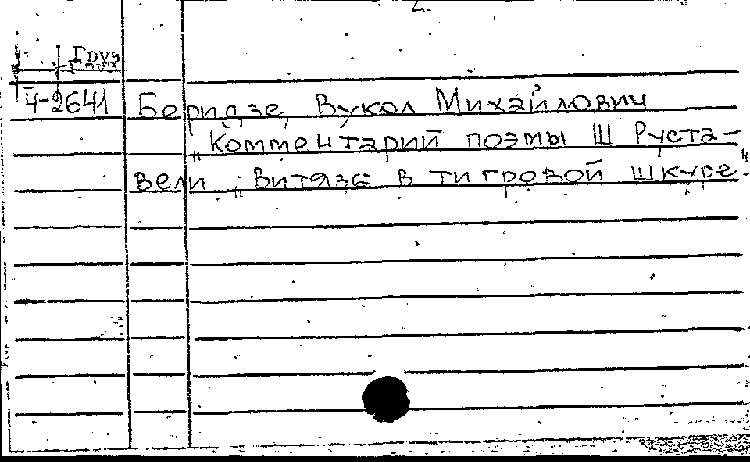 2.
Груз
4-2641 Беридзе, Вукол Михайлович
„Комментарий поэмы Ш Руста-
вели „Витязь в тигровой шкуре"